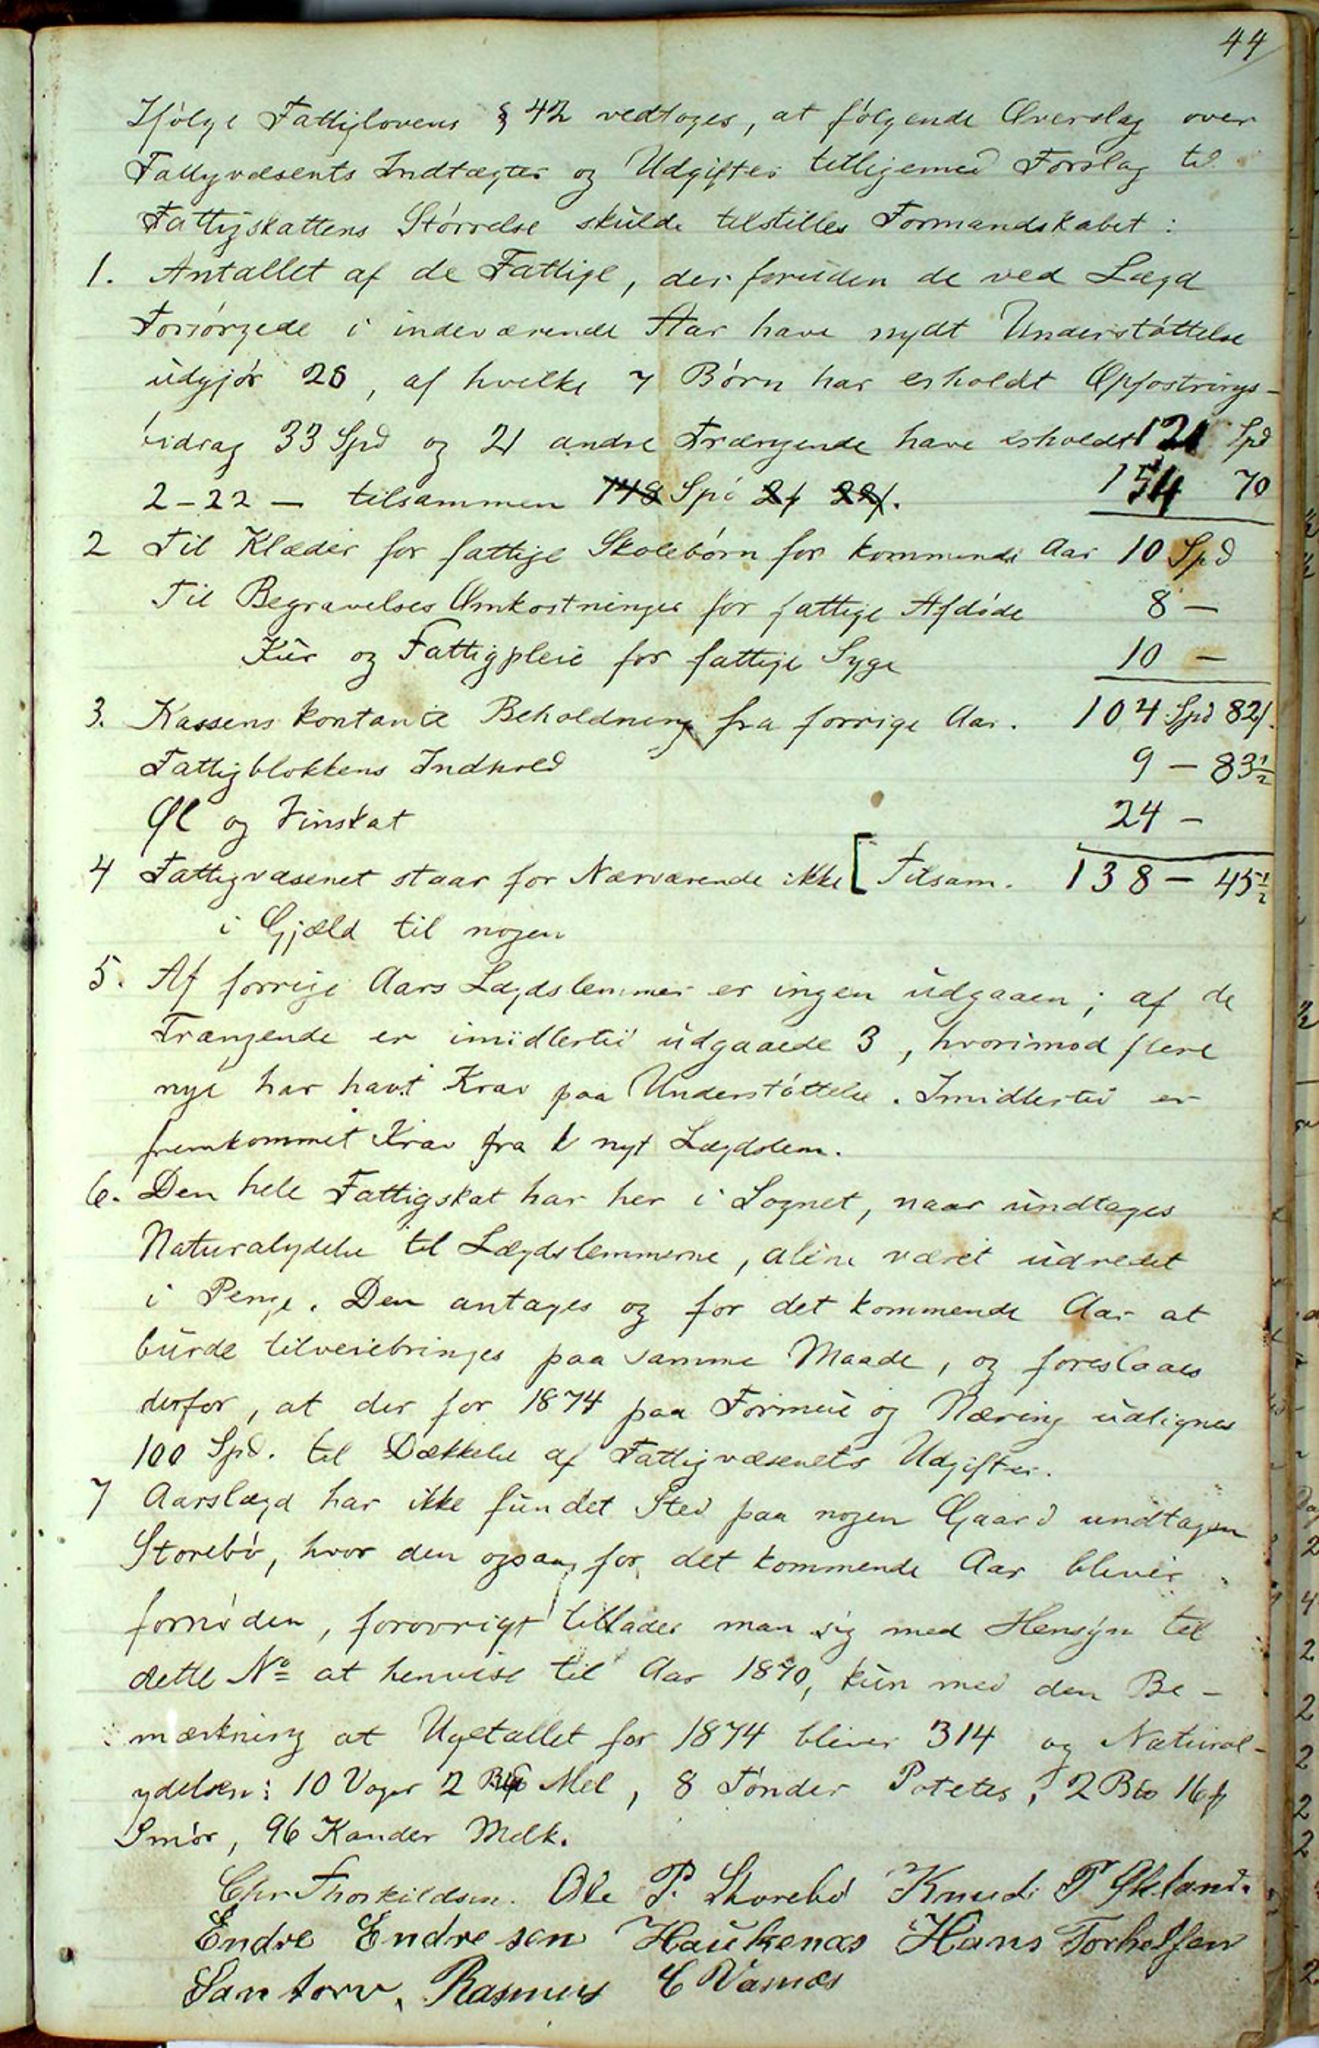 44
Ifølge Fattiglovens § 42 vedtoges, at følgende Overslag over
Fattigvæsents Indtægter og Udgifter tilligemed Forslag til
Fattigskattens Størrelse skulde tilstilles Formandskabet :
1. Antallet af de Fattige, der foruden de ved Lægd
Forsørgede i indeværende Aar have nydt Understøttelse
udgjør 28, af hvilke 7 Børn har erholdt Opfostrings-
bidrag 33 Spd og 21 andre Trængende have erholdt 121 Spd
2-22 - tilsammen 148 Spd 2 22. 154 70
2 Til Klæder for fattige Skolebørn for kommende Aar 10 Spd
Til Begravelses Omkostninger for fattige Afdøde 8 -
Kur og Fattigpleie for fattige Syge 10 -
3. Kassens kontante Beholdning fra forrige Aar. 104 Spd 82
Fattigblokkens Indhold 9 - 83½
Øl og Vinskat 24 -
4 Fattigvæsenet staar for Nærværende ikke [ Tilsam. 138 - 45½
i Gjæld til nogen
5. Af forrige Aars Lægdslemmer er ingen udgaaen; af de
Trængende er imidlertid udgaaede 3, hvorimod flere
nye har havt Krav paa Understøttelse. Imidlertid er
fremkommet Krav fra 1 nyt Lægdslem.
6. Den hele Fattigskat har her i Sognet, naar undtages
Naturalydelse til Lægdslemmerne, alene været udredet
i Penge. Den antages og for det kommende Aar at
burde tilveiebringes paa samme Maade, og foreslaaes
derfor, at der for 1874 paa Formue og Næring udlignes
100 Spd. til Dækkelse af Fattigvæsenets Udgifter.
7 Aarslægd har ikke fundet Sted paa nogen Gaard undtagen
Storebø, hvor den ogsaa for det kommende Aar bliver
fornøden, forøvrigt tillader man sig med Hensyn til
dette No at henvise til Aar 1870, kun med den Be-
mærkning at Ugetallet for 1874 bliver 314 og Natural-
ydelsen: 10 Voger 2 Mel, 8 Tønder Poteter, 2 16
Smør, 96 Kander Melk.
Chr Thorkildsen. Ole P. Storebø Knud P Økland.
Endre Endresen Haukenæs Hans Torkelsen
Santorv. Rasmus E Vasnæs